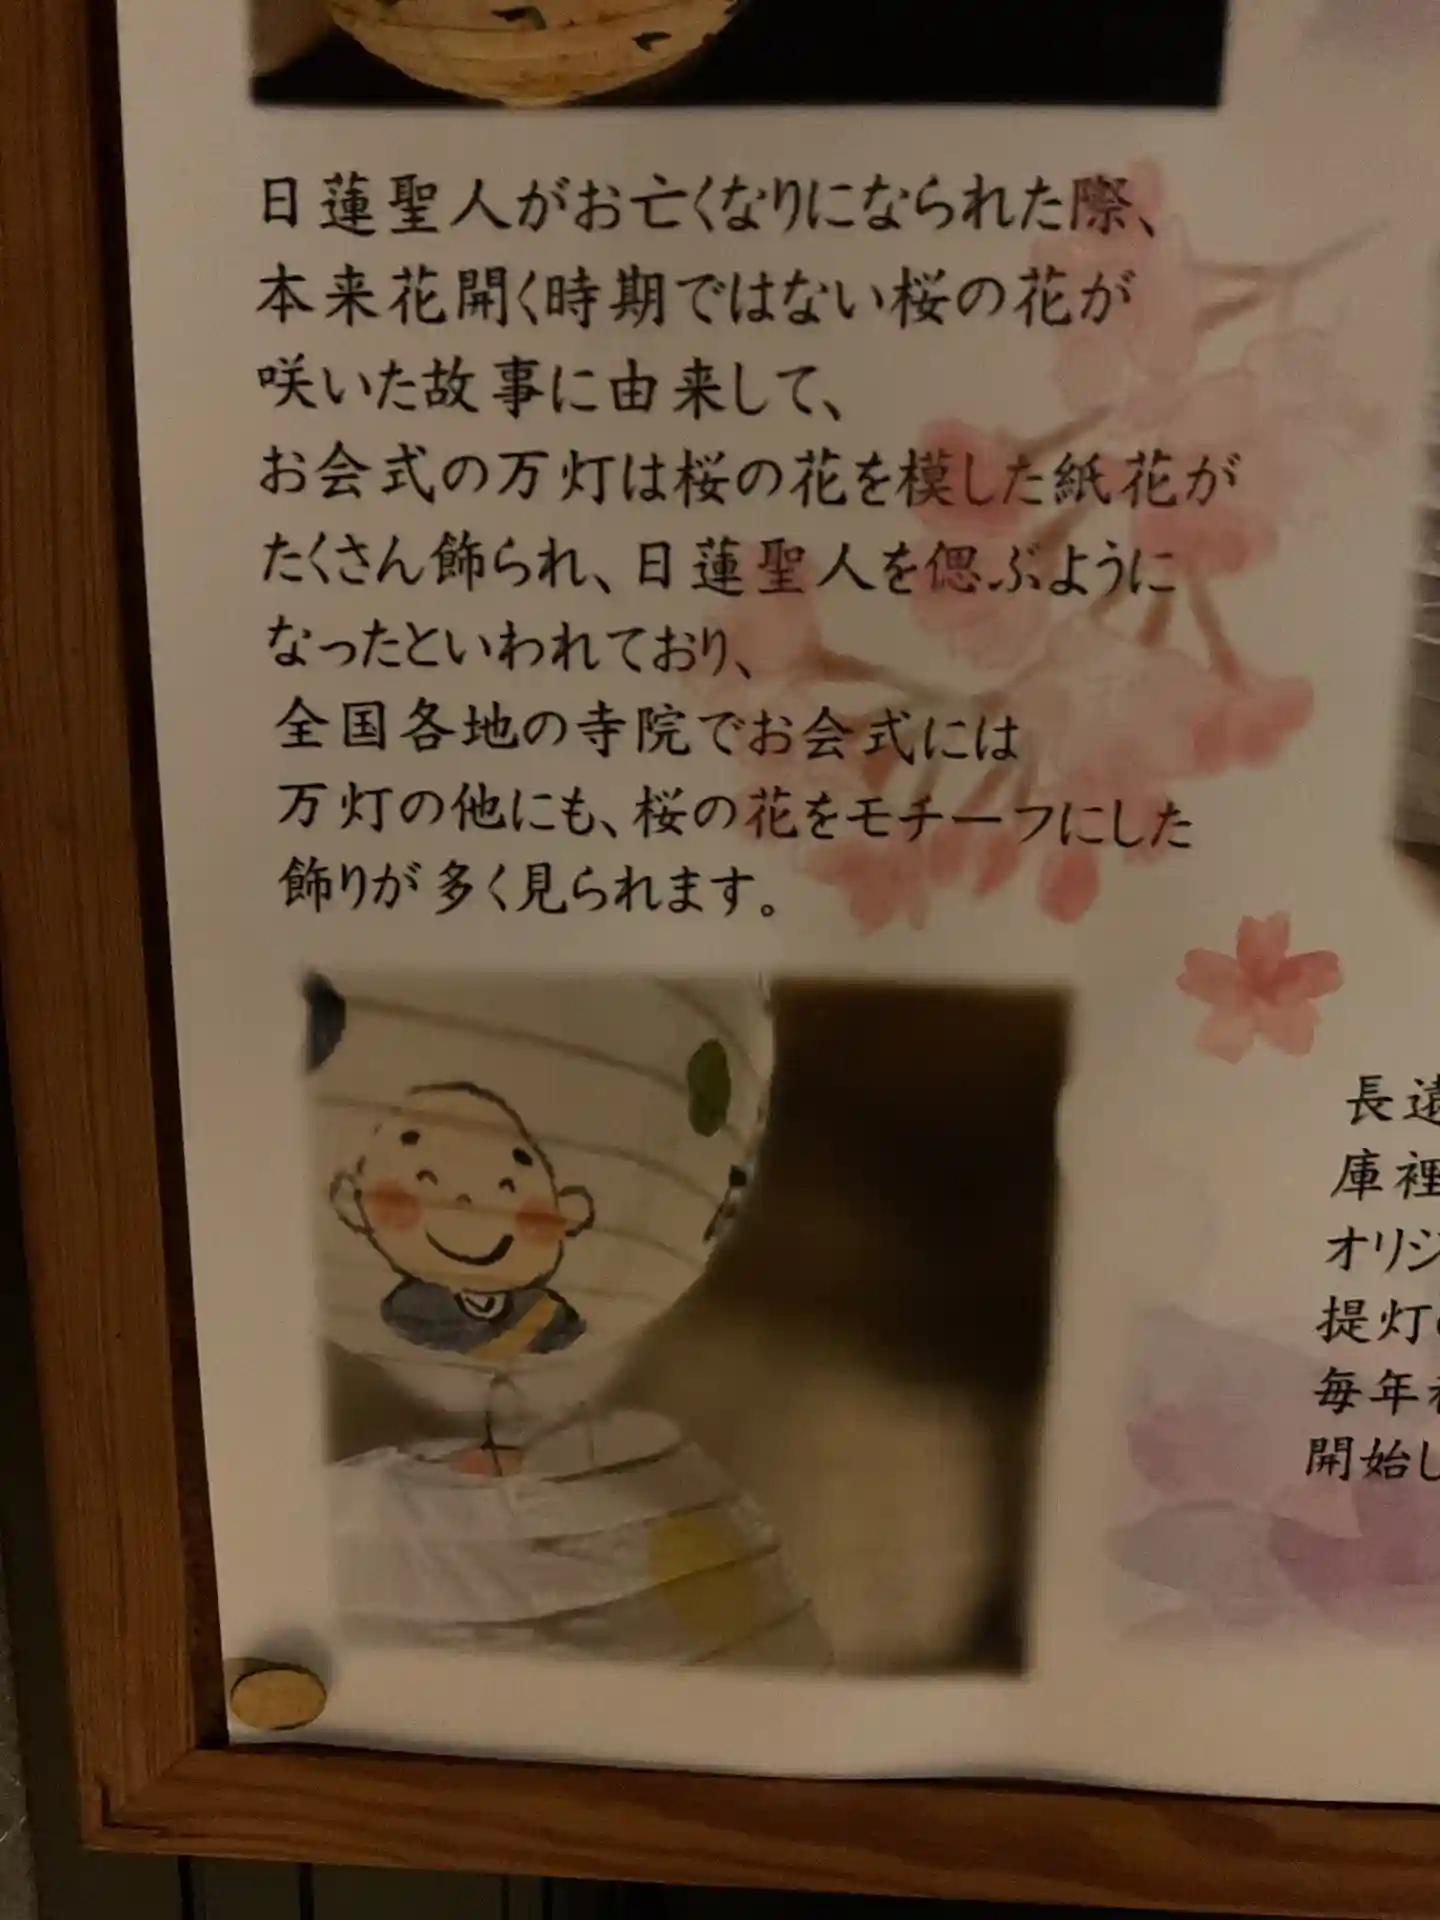 日蓮聖人がお亡くなりになられた際、
本来花開く時期ではない桜の花が
咲いた故事に由来して、
お会式の万灯は桜の花を模した紙花が
たくさん飾られ、日蓮聖人を偲ぶように
なったといわれており、
全国各地の寺院でお会式には
万灯の他にも、桜の花をモチーフにした
飾りが多く見られます。
長遠
庫裡
オリジ
提灯
毎年
開始し